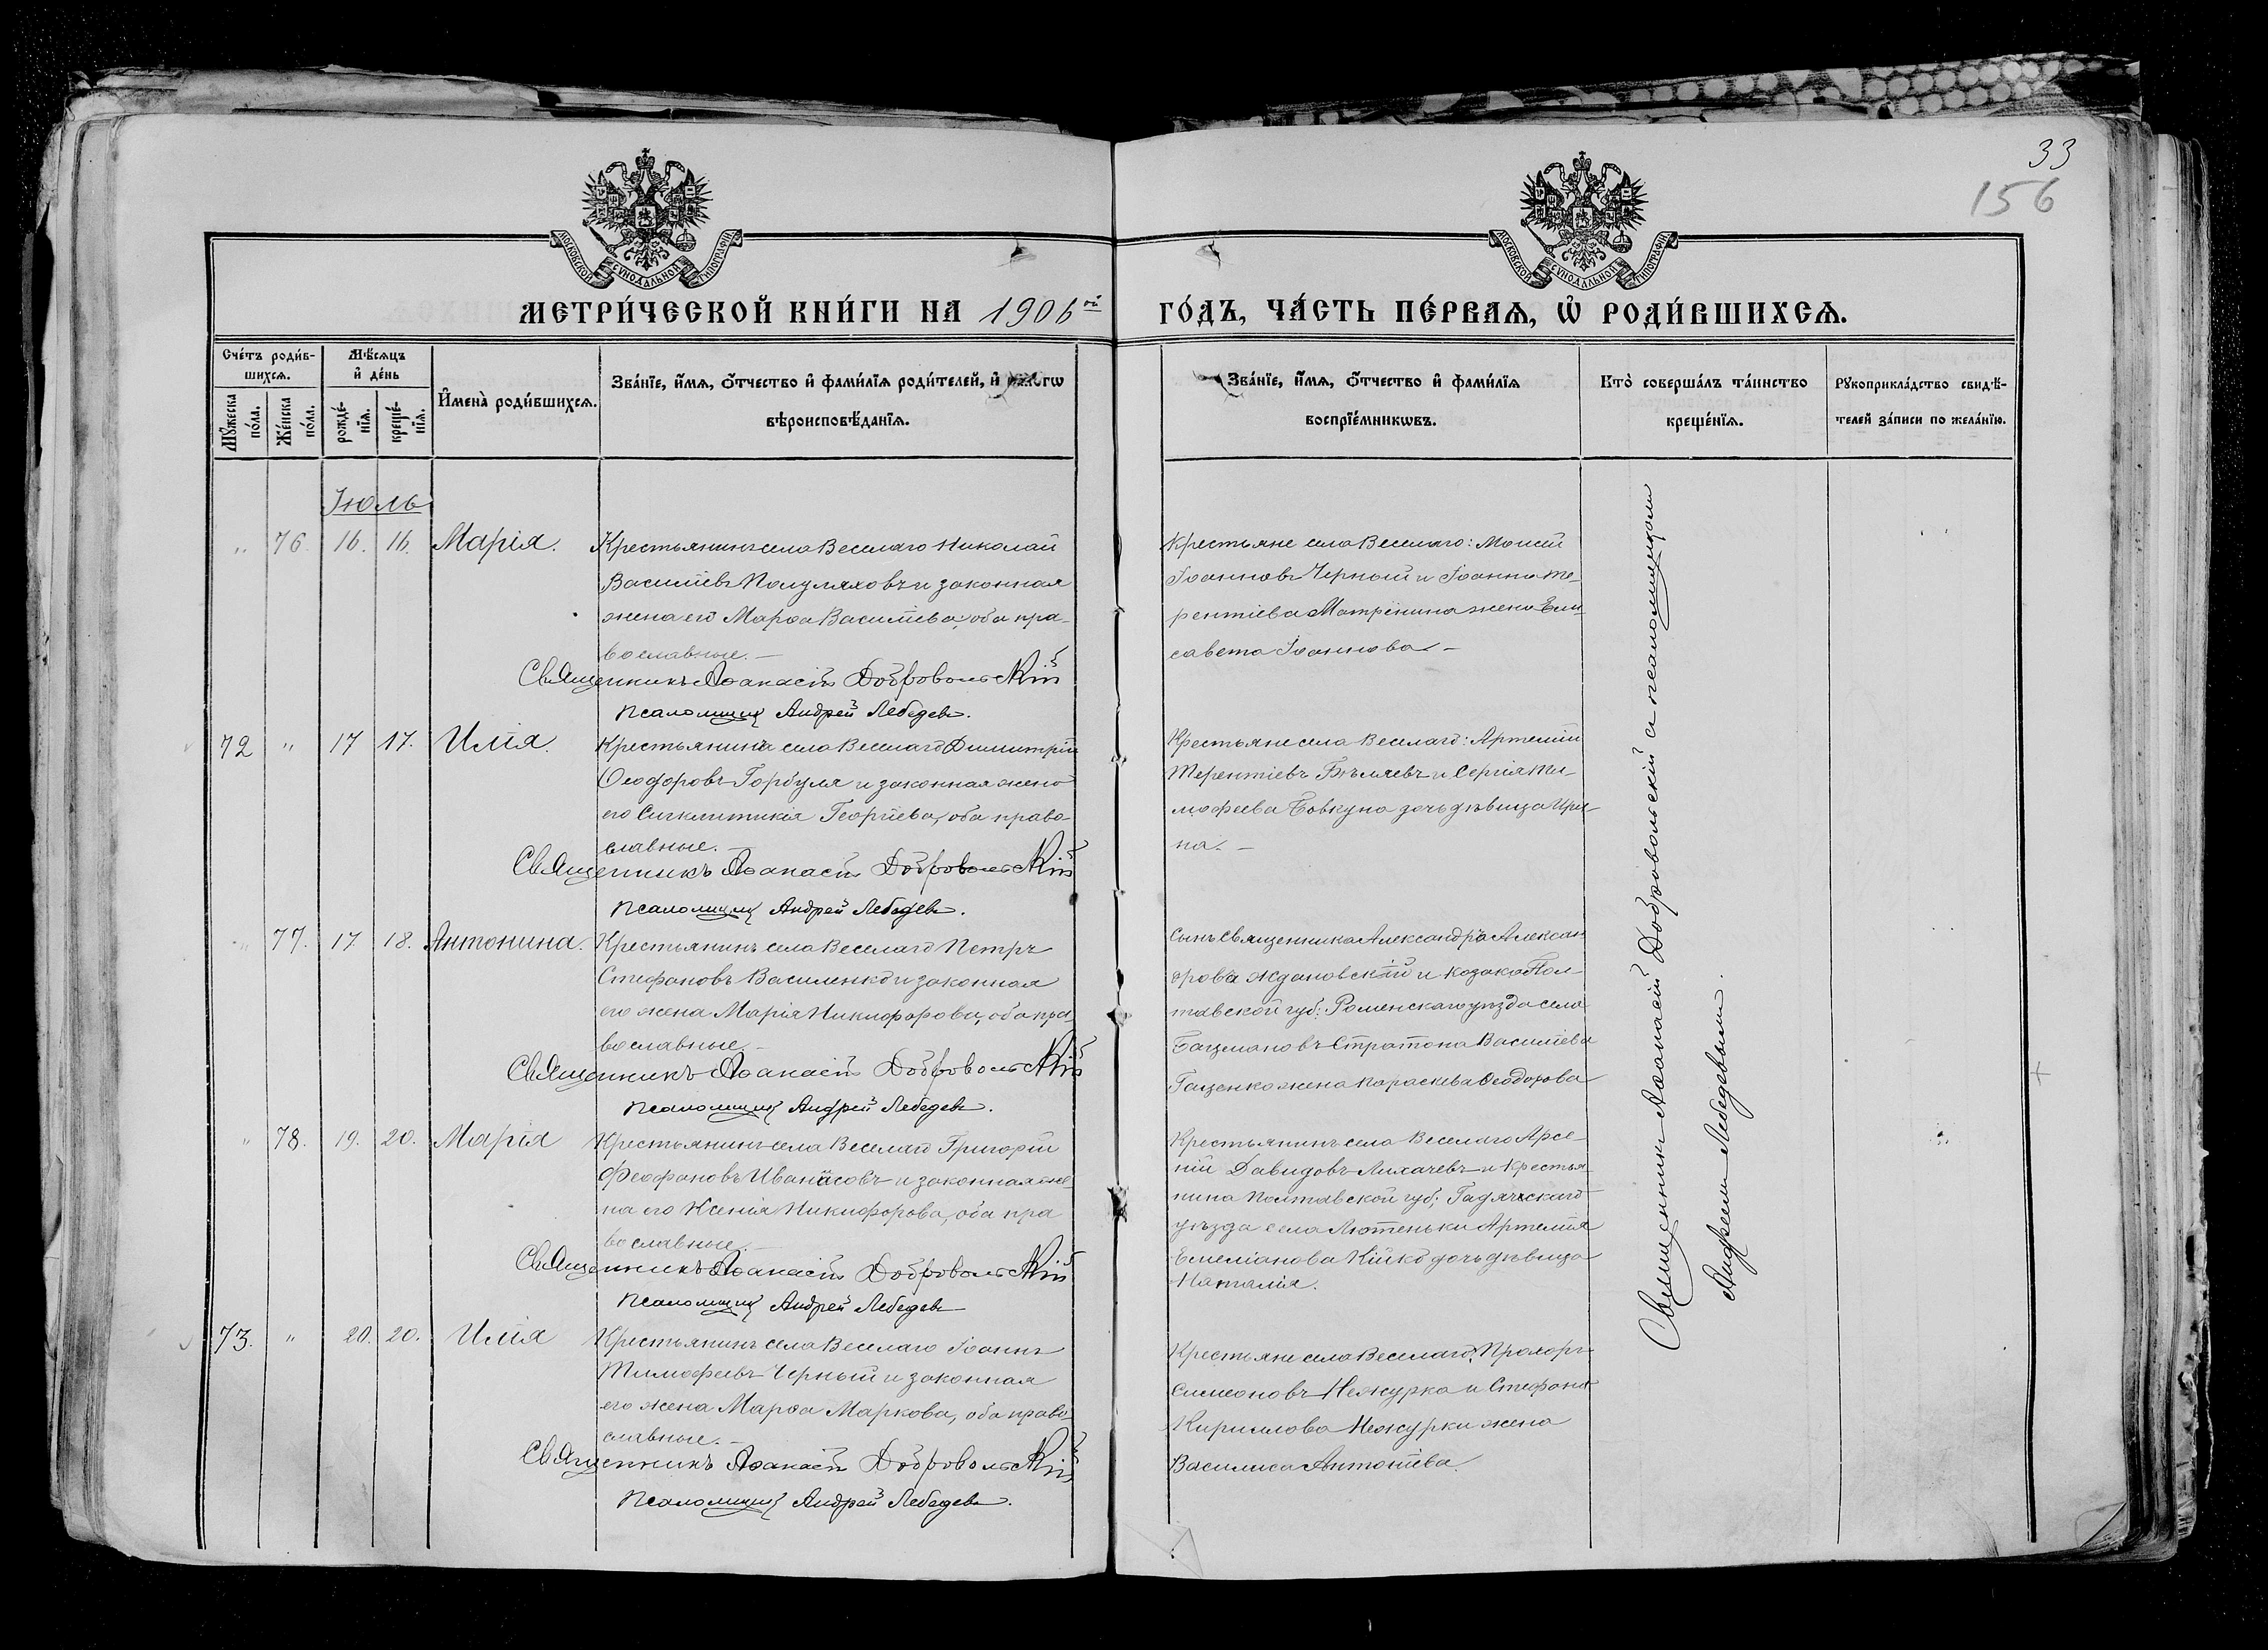 33
156
МОСКОВСКОЙ СѴНОДАЛЬНОЙ ТИПОГРАФІИ
МОСКОВСКОЙ СѴНОДАЛЬНОЙ ТИПОГРАФІИ
МЕТРИ́ЧЕСКОЙ КНИ́ГИ НА 1906й ГО́ДЪ, ЧА́СТЬ ПЕ́РВАѦ, Ѡ РОДИ́ВШИХСѦ.
Сче́тъ роди́в-
шихсѧ.
Мѣ́сѧцъ
и҆ де́нь
Мꙋ́жеска
по́ла.
Же́нска
по́ла.
рожде́-
нїѧ.
креще́-
нїѧ.
И҆мена̀ роди́вшихсѧ.
Зва́нїе, и҆́мѧ, ѻ҆́тчество и҆ фами́лїѧ роди́телей, и҆
вѣроисповѣ́данїѧ.
Зва́нїе, и҆́мѧ, ѻ҆́тчество и҆ фами́лїѧ
воспрїе́мникѡвъ.
Кто̀ соверша́лъ та́инство
креще́нїѧ.
Рꙋкоприкла́дство свидѣ́-
телей за́писи по жела́нїю.
Іюль
„ 76. 16. 16. Марія.
Крестьянинъ села Веселаго Николай
Васильевъ Полуляховъ и законная
жена его Марѳа Васильева, оба пра-
вославные. —
Священникъ Аѳанасій Добровольскій
Псаломщикъ Андрей Лебедевъ.
Крестьяне села Веселаго: Моисей
Іоанновъ Черный и Іоанна Те-
рентіева Матрёнина жена Ели-
савета Іоаннова. —
72 „ 17 17. Илія.
Крестьянинъ села Веселаго Димитрій
Ѳеодоровъ Горбуля и законная жена
его Сигклитикія Георгіева, оба право-
славные. —
Священникъ Аѳанасій Добровольскій
Псаломщикъ Андрей Лебедевъ.
Крестьяне села Веселаго: Артемій
Терентіевъ Бѣляевъ и Сергія Ти-
мофеева Бовкуна дочь дѣвица Ири-
на. —
„ 77. 17. 18. Антонина.
Крестьянинъ села Веселаго Петръ
Стефановъ Василенко и законная
его жена Марія Никифорова, оба пра-
вославные. —
Священникъ Аѳанасій Добровольскій
Псаломщикъ Андрей Лебедевъ.
Сынъ священника Александръ Алексан
дровъ Ждановскій и козака Пол-
тавской губ: Роменскаго уѣзда села
Бацмановъ Стратона Васильева
Гаценко жена Параскева Ѳеодорова
„ 78. 19. 20. Марія
Крестьянинъ села Веселаго Григорій
Феофановъ Иванисовъ и законная же-
на его Ксенія Никифорова, оба пра
вославные. —
Священникъ Аѳанасій Добровольскій
Псаломщикъ Андрей Лебедевъ
Крестьянинъ села Веселаго Арсе-
ній Давидовъ Лихачевъ и крестья-
нина Полтавской губ; Гадячскаго
уѣзда села Лютеньки Артемія
Емеліанова Кійко дочь дѣвица
Наталія.
73. „ 20. 20. Илія
Крестьянинъ села Веселаго Іоаннъ
Тимофеевъ Черный и законная
его жена Марѳа Маркова, оба право-
славные. —
Священникъ Аѳанасій Добровольскій
Псаломщикъ Андрей Лебедевъ.
Крестьяне села Веселаго: Прохоръ
Симеоновъ Нежурка и Стефана
Кириллова Нежурки жена
Василиса Антоніева.
Священникъ Аѳанасій Добровольскій съ псаломщикомъ
Андреемъ Лебедевымъ.